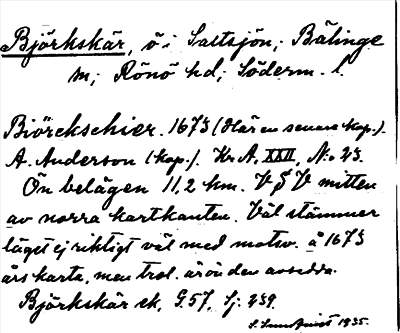 Björkskär, ö i Saltsjön; Bälinge
sn; Rönö hd; Söderm. l.
Biörckschier. 1673 (Här en senare kop.).
A. Anderson (kop.). Kr. A. XXII, No 23.
Ön belägen 11,2 km. V S V mitten
av norra kartkanten. Väl stämmer
läget ej riktigt väl med motsv. å 1673
års karta, men trol. är ön den avsedda.
Björkskär ek. G. 57, Sj: 239.
1935.